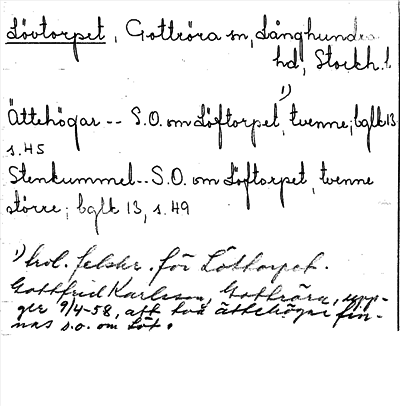 Lövtorpet, Gottröra sn, Långhundra
hd, Stockh. l.
1)
Ättehögar -- S.O. om Löftorpet, tvenne; bglk 13
s. 45
Stenkummel -- S.O. om Löftorpet, tvenne
större; bglk 13, s. 49
1) trol. felskr. för Löttorpet.
Gottfrid Karlsson, Gottröra, upp-
ger 9/4-58, att två ättehögar fin-
nas s.o. om Löt.